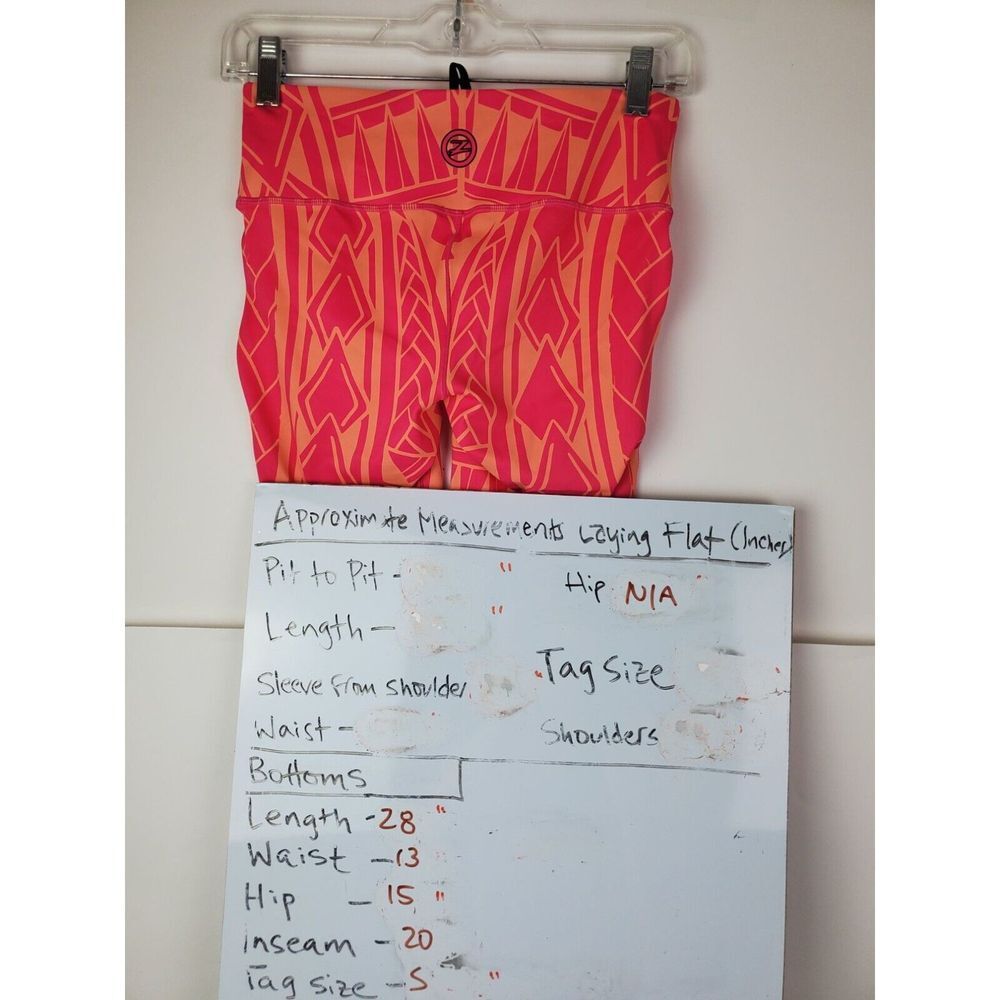 Approximate Measurements Laying Flat (Inches)
Pit to Pit - "
Hip N/A "
Length - "
Tag Size
Sleeve from shoulder "
Shoulders
Waist - "
Bottoms
Length - 28 "
Waist - 13
Hip - 15 "
Inseam - 20
Tag size - S "